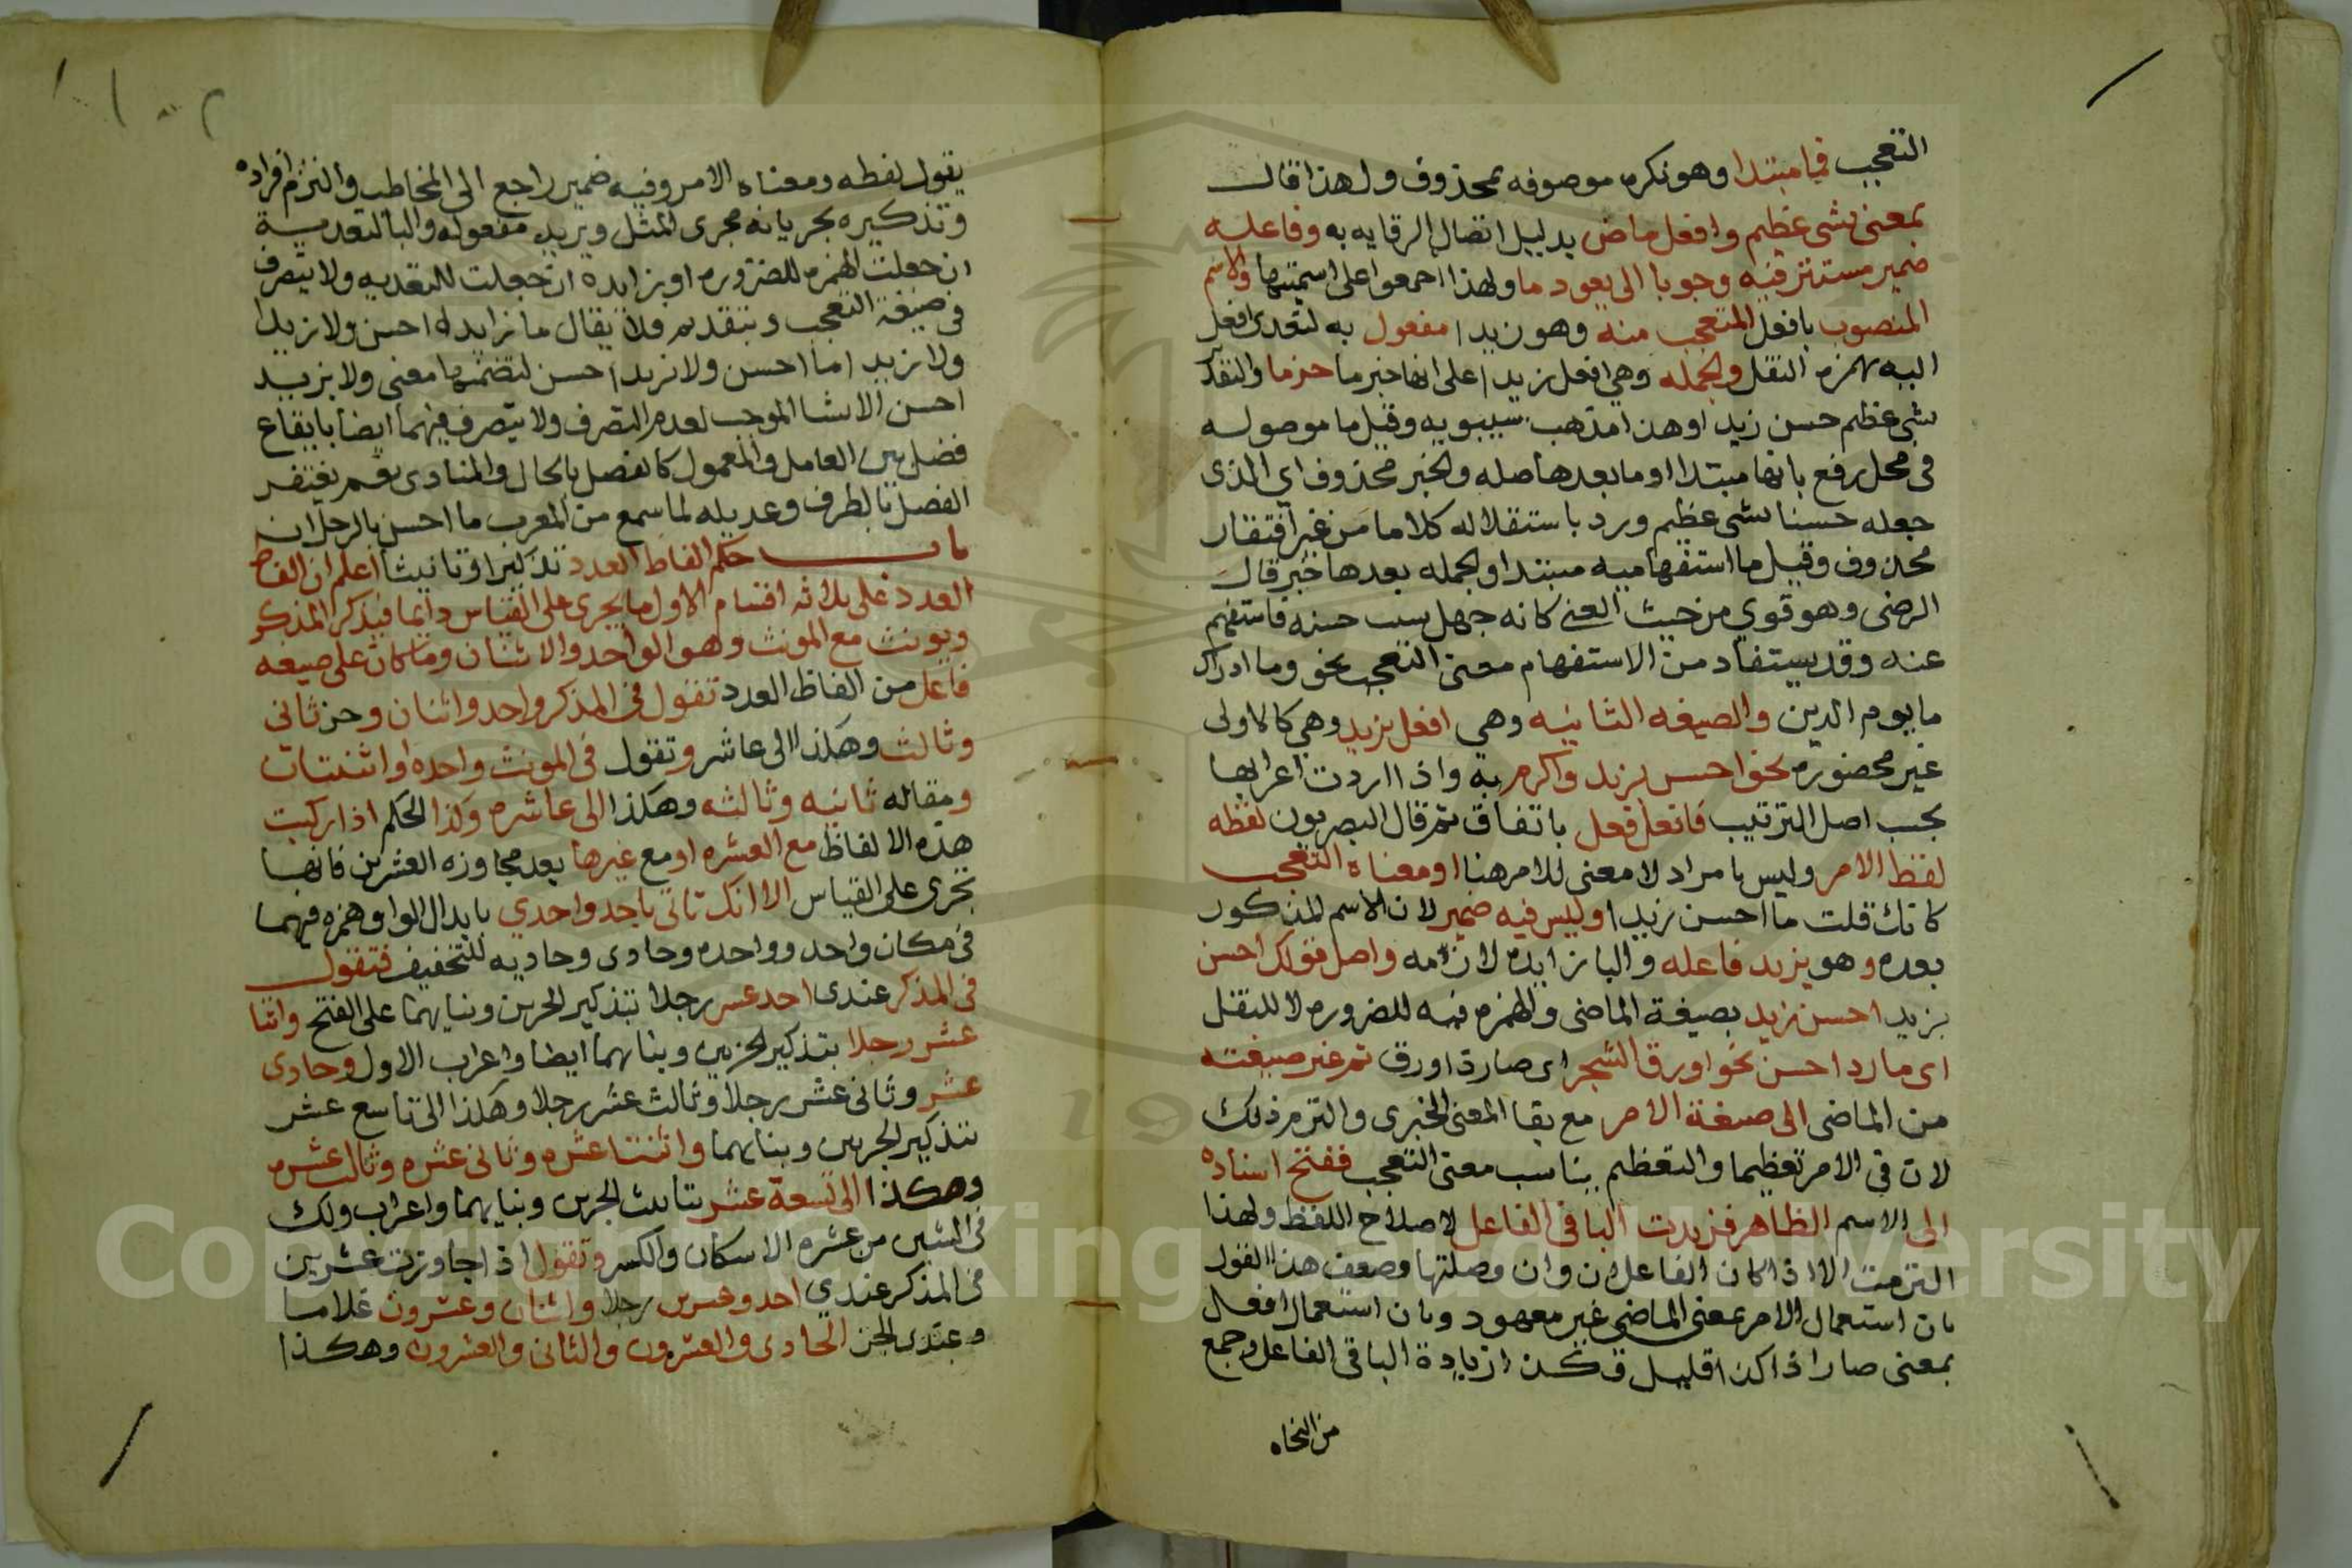 التعجب فما مبتدا وهو نكره موصوفه بمحذوف ولهذا قال
بمعنى شى عظيم وافعل ماض بدليل اتصال الوقايه به وفاعله
ضمير مستتر فيه وجوبا الى يعود ما ولهذا اجمعوا على اسميتها والاسم
المنصوب بافعل المتعجب منه وهو زيدا مفعول به لتعدى افعل
اليه بهمزه النقل والجمله وهي افعل زيدا على انها خبر ما حزما والتقد
شى عظيم حسن زيدا وهذا مذهب سيبويه وقيل ما موصوله
فى محل رفع بانها مبتدا وما بعدها صله والخبر محذوف اي الذى
جعله حسنا شى عظيم ورد باستقلاله كلاما من غير افتقار
محذوف وقيل ما استفهاميه مبتدا والجمله بعدها خبر قال
الرضى وهو قوي من حيث المعنى كانه جهل سبب حسنه فاستفهم
عنه وقد يستفاد من الاستفهام معنى التعجب نحو وما ادراك
ما يوم الدين والصيغه الثانيه وهي افعل بزيد وهي كالاولى
غير محصوره نحو احسن بزيد واكرم به واذا اردت اعرابها
بحسب اصل الترتيب فافعل فعل باتفاق ثم قال البصريون لفظه
لفظ الامر وليس بامراد لا معنى للامر هنا ومعناه التعجب
كانك قلت ما احسن زيدا وليس فيه ضمير لان الاسم المذكور
بعده وهو بزيد فاعله والبا زايده لازمه واصل قولك احسن
بزيد احسن زيد بصيغة الماضى والهمزه فيه للضروره لا للنقل
اى صار دا حسن نحو اورق الشجر اى صار ذا ورق ثم غير صيغته
من الماضى الى صيغة الامر مع بقا المعنى الخبرى والتزم ذلك
لان فى الامر تعظيما والتعظيم يناسب معنى التعجب ففتح اسناده
الى الاسم الظاهر فزيدت البا فى الفاعل لاصلاح اللفظ ولهذا
التزمت الا اذا كان الفاعل ان وان وصلتها وضعف هذا القول
بان استعمال الامر بمعنى الماضى غير معهود وبان استعمال افعل
بمعنى صار اذا كذا قليل وكذا زيادة البا فى الفاعل وجمع
من النحاه
يقول لفظه ومعناه الامر وفيه ضمير راجع الى المخاطب والتزم افراده
وتذكيره بجريانه مجرى المثل وبزيد مفعوله والبا للتعدية
ان جعلت الهمزه للضروره او زايدة ان جعلت للتعديه ولا يتصرف
فى صيغة التعجب وبتقديم فلا يقال ما زايدا احسن ولا زيدا
ولا زيد اما احسن ولا زيدا احسن لتضمنها معنى ولا بزيد
احسن الانشا الموجب لعدم التصرف ولا يتصرف فيهما ايضا بايقاع
فصل بين العامل والمعمول كالفصل بالحال والمنادى نعم يغتفر
الفصل بالظرف وعديله لما سمع من العرب ما احسن بالرجل ان
باب حكم الفاظ العدد تذكيرا وتانيثا اعلم ان الفاظ
العدد على ثلاثه اقسام الاول ما يجرى على القياس دايما فيذكر المذكر
ويونث مع المونث وهو الواحد والاثنان وما كان على صيغه
فاعل من الفاظ العدد تقول فى المذكر واحد واثنان وحز ثانى
وثالث وهكذا الى عاشر وتقول فى المونث واحده واثنتان
ومقاله ثانيه وثالثه وهكذا الى عاشره وكذا الحكم اذا ركبت
هذه الالفاظ مع العشره او مع غيرها بعد مجاوزه العشرين فانها
تجرى على القياس الا انك تاتى باحد واحدي بابدال الواو همزه فيهما
فى مكان واحد وواحده وحادى وحاديه للتخفيف فتقول
فى المذكر عندى احد عشر رجلا بتذكير الجزين وبنايهما على الفتح واثنا
عشر رجلا بتذكير الجزين وبنايهما ايضا واعراب الاول وحادى
عشر وثانى عشر رجلا وثالث عشر رجلا وهكذا الى تاسع عشر
بتذكير الجزين وبنايهما واثنتا عشره وثانى عشره وثالث عشره
وهكذا الى تسعة عشر بتانيث الجزين وبنايهما واعراب ولك
فى الشين من عشره الاسكان والكسر وتقول اذا جاوزت عشرين
فى المذكر عندي احد وعشرين رجلا واثنان وعشرون غلاما
وعندى الجز الحادى والعشرون والثانى والعشرون وهكذا
Copyright © King Saud University